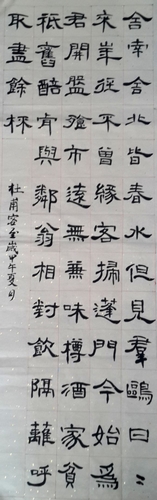 舍南舍北皆春水但見羣鷗日〻
來花徑不曾緣客掃蓬門今始為
君開盤飧市遠無兼味樽酒家貧
秪舊醅肯與鄰翁相對飲隔籬呼
取盡餘杯
杜甫客至歲甲午夏月